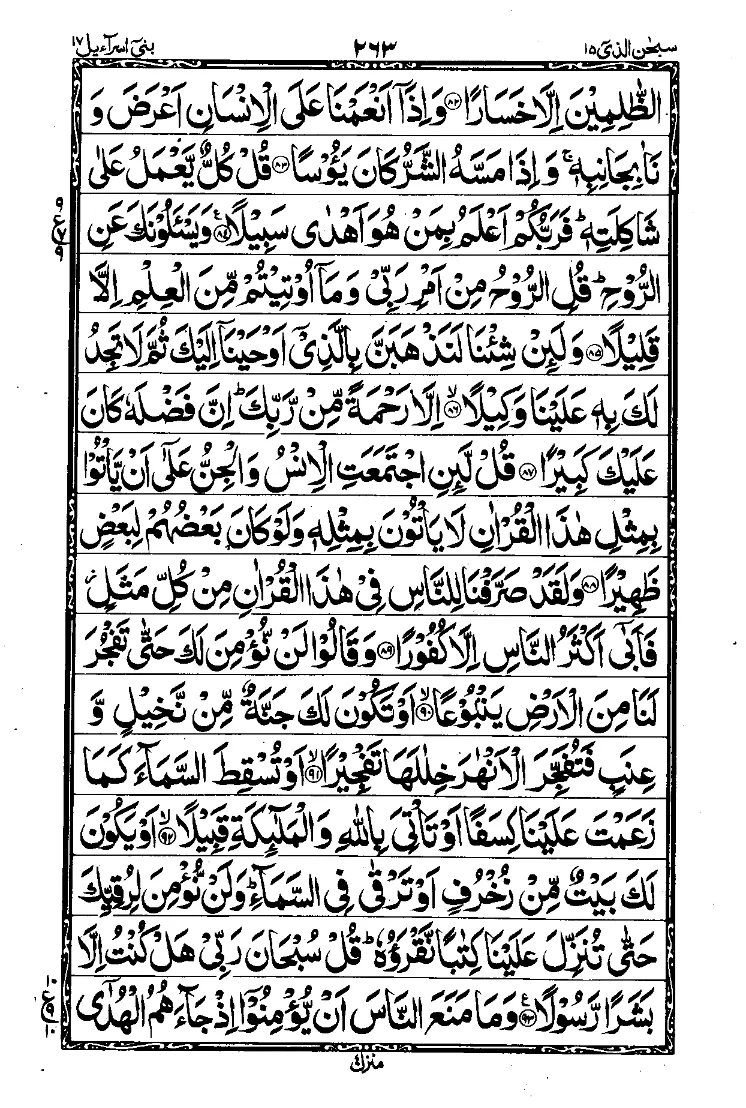 سبحٰن الذیٓ ۱۵
۲۶۳
بنیٓ اسرآءیل ۱۷
الظّٰلِمِیْنَ اِلَّا خَسَارًا ﴿۸۲﴾ وَاِذَاۤ اَنْعَمْنَا عَلَی الْاِنْسَانِ اَعْرَضَ وَ
نَاٰبِجَانِبِهٖ ۚ وَاِذَا مَسَّهُ الشَّرُّ كَانَ یَـُٔوْسًا ﴿۸۳﴾ قُلْ كُلٌّ یَّعْمَلُ عَلٰی
شَاكِلَتِهٖ ؕ فَرَبُّكُمْ اَعْلَمُ بِمَنْ هُوَ اَهْدٰی سَبِیْلًا ﴿۸۴﴾ ع وَیَسْـَٔلُوْنَكَ عَنِ
الرُّوْحِ ؕ قُلِ الرُّوْحُ مِنْ اَمْرِ رَبِّیْ وَمَاۤ اُوْتِیْتُمْ مِّنَ الْعِلْمِ اِلَّا
قَلِیْلًا ﴿۸۵﴾ وَلَىِٕنْ شِئْنَا لَنَذْهَبَنَّ بِالَّذِیْۤ اَوْحَیْنَاۤ اِلَیْكَ ثُمَّ لَا تَجِدُ
لَكَ بِهٖ عَلَیْنَا وَكِیْلًا ﴿۸۶﴾ ۙ اِلَّا رَحْمَةً مِّنْ رَّبِّكَ ؕ اِنَّ فَضْلَهٗ كَانَ
عَلَیْكَ كَبِیْرًا ﴿۸۷﴾ قُلْ لَّىِٕنِ اجْتَمَعَتِ الْاِنْسُ وَالْجِنُّ عَلٰۤی اَنْ یَّاْتُوْا
بِمِثْلِ هٰذَا الْقُرْاٰنِ لَا یَاْتُوْنَ بِمِثْلِهٖ وَلَوْ كَانَ بَعْضُهُمْ لِبَعْضٍ
ظَهِیْرًا ﴿۸۸﴾ وَلَقَدْ صَرَّفْنَا لِلنَّاسِ فِیْ هٰذَا الْقُرْاٰنِ مِنْ كُلِّ مَثَلٍ ؗ
فَاَبٰۤی اَكْثَرُ النَّاسِ اِلَّا كُفُوْرًا ﴿۸۹﴾ وَقَالُوْا لَنْ نُّؤْمِنَ لَكَ حَتّٰی تَفْجُرَ
لَنَا مِنَ الْاَرْضِ یَنْۢبُوْعًا ﴿۹۰﴾ ۙ اَوْ تَكُوْنَ لَكَ جَنَّةٌ مِّنْ نَّخِیْلٍ وَّ
عِنَبٍ فَتُفَجِّرَ الْاَنْهٰرَ خِلٰلَهَا تَفْجِیْرًا ﴿۹۱﴾ ۙ اَوْ تُسْقِطَ السَّمَآءَ كَمَا
زَعَمْتَ عَلَیْنَا كِسَفًا اَوْ تَاْتِیَ بِاللّٰهِ وَالْمَلٰٓىِٕكَةِ قَبِیْلًا ﴿۹۲﴾ ۙ اَوْ یَكُوْنَ
لَكَ بَیْتٌ مِّنْ زُخْرُفٍ اَوْ تَرْقٰی فِی السَّمَآءِ ؕ وَلَنْ نُّؤْمِنَ لِرُقِیِّكَ
حَتّٰی تُنَزِّلَ عَلَیْنَا كِتٰبًا نَّقْرَؤُهٗ ؕ قُلْ سُبْحَانَ رَبِّیْ هَلْ كُنْتُ اِلَّا
بَشَرًا رَّسُوْلًا ﴿۹۳﴾ ع وَمَا مَنَعَ النَّاسَ اَنْ یُّؤْمِنُوْۤا اِذْ جَآءَهُمُ الْهُدٰۤی
۹ ع ۷ ۹
۱۰ ع ۹ ۱۰
منزل ۴